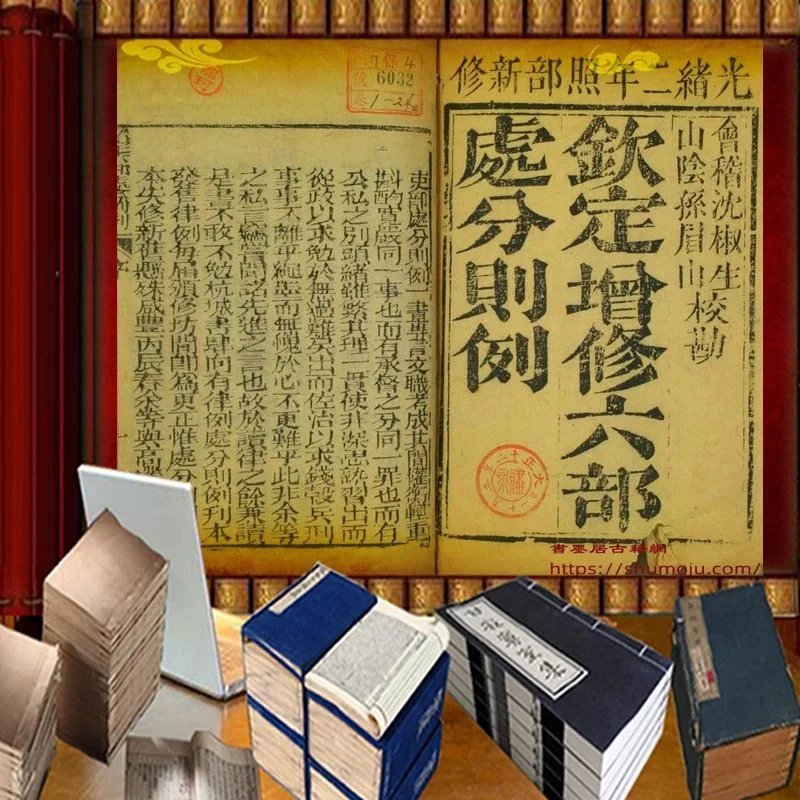 光緒二年照部新修
會稽沈椒生
山陰孫眉山校勘
欽定增修六部
處分則例
吏部處分則例一書專言文職考成其間權衡輕重
斟酌寬嚴同一事也而有承督之分同一罪也而有
公私之別頭緒雖繁其理一貫使非深思熟習出而
從政以求勉於無過難矣出而佐治以求錢穀兵刑
事事不離乎繩墨而無愧於心不更難乎此非余等
之私言嘗聞諸先進之言也故於讀律之餘兼讀
是書不敢不勉杭城書肆向有律例處分則例刊本
發售律例每屆頒修坊間即為更正惟處分
本失修新舊懸殊咸豐丙辰春余等與高
6032
書墨居古籍網
https://shumoju.com/